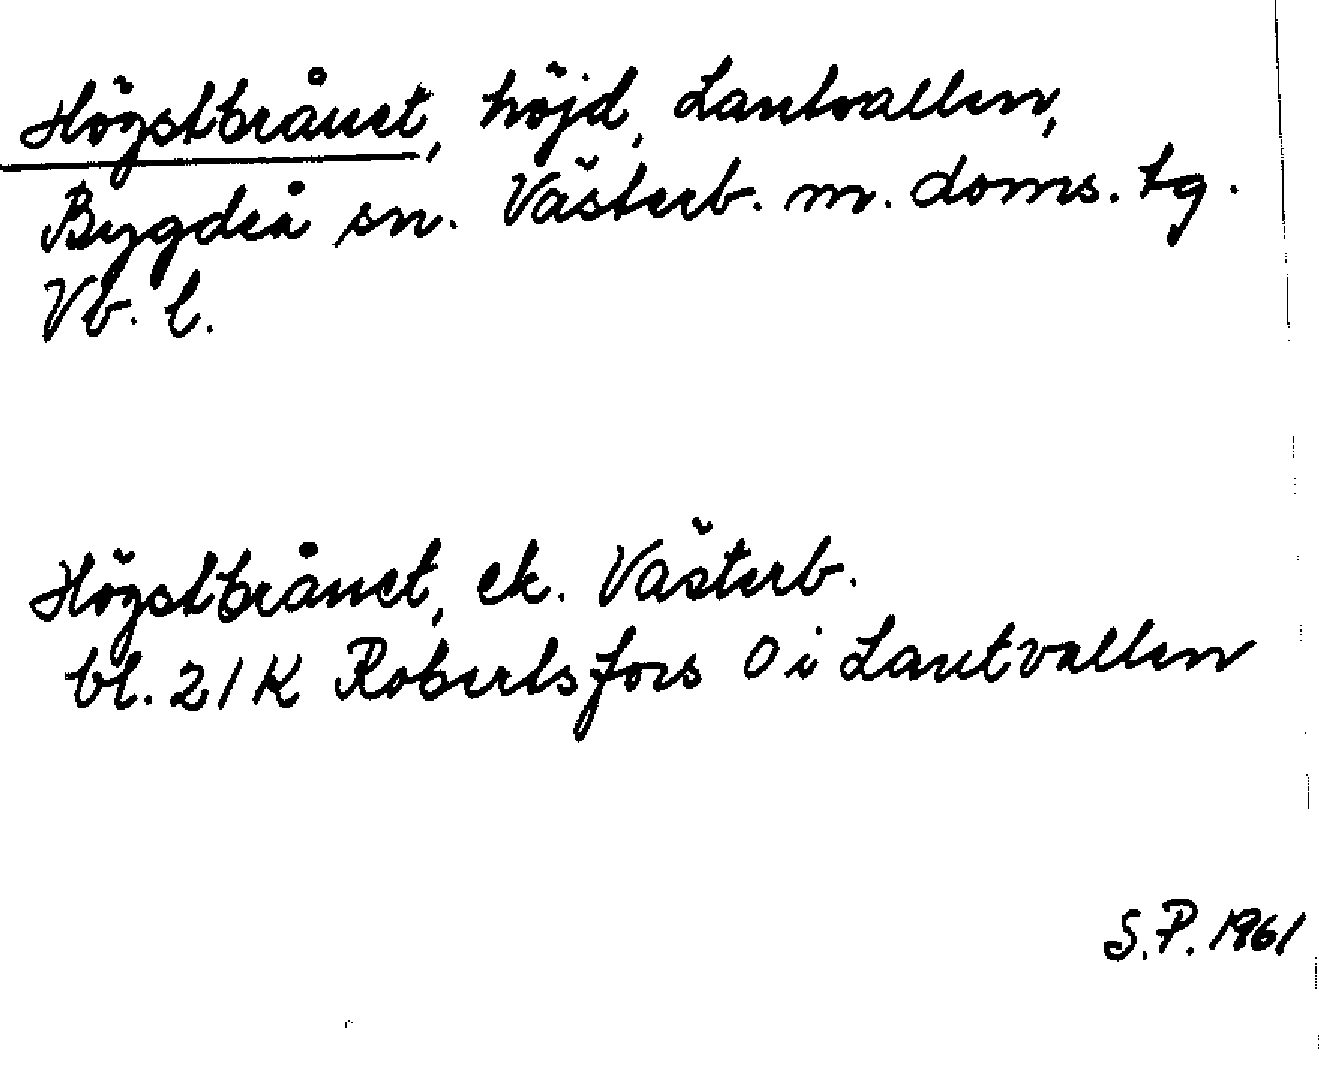 Högstbrånet, höjd, Lautvallen,
Bygdeå sn. Västerb. m. doms. tg.
Vb. l.
Högstbrånet, ek. Västerb.
bl. 21 K Robertsfors O i Lautvallen
S.P. 1961